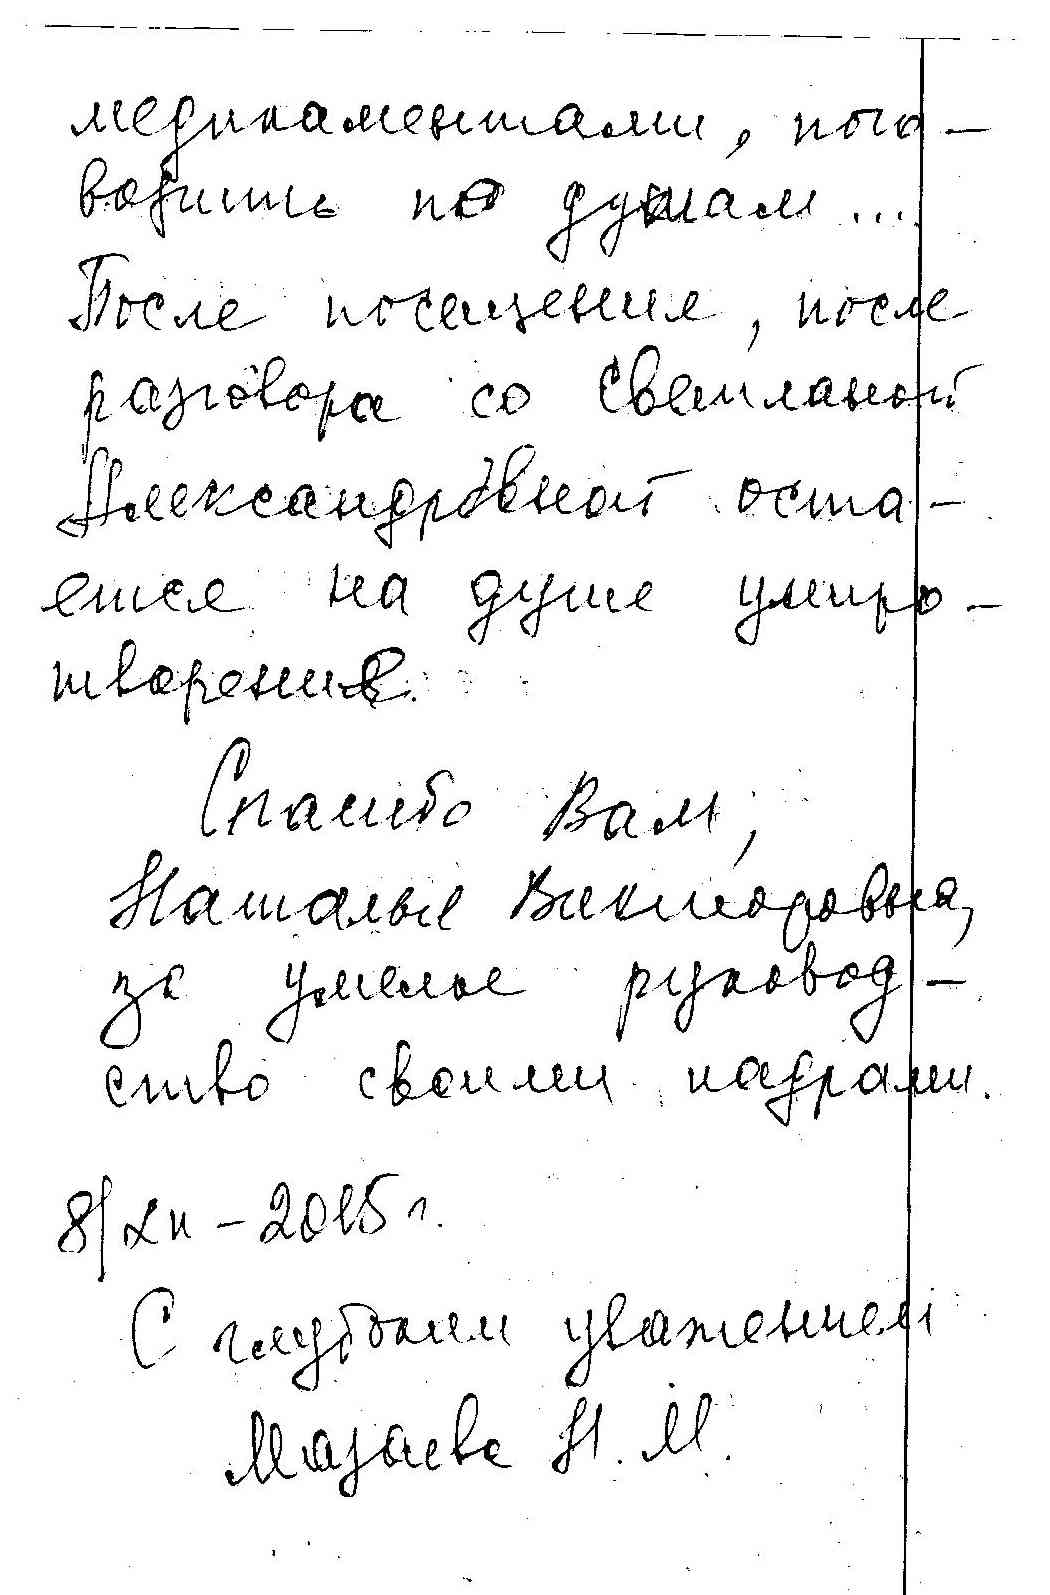 медикаментами, пого-
ворить по душам...
После посещения, после
разговора со Светланой
Александровной оста-
ется на душе умиро-
творение.
Спасибо Вам,
Наталья Викторовна,
за умелое руковод-
ство своими кадрами.
8/XII - 2015 г.
С глубоким уважением
Мазаева Н. М.